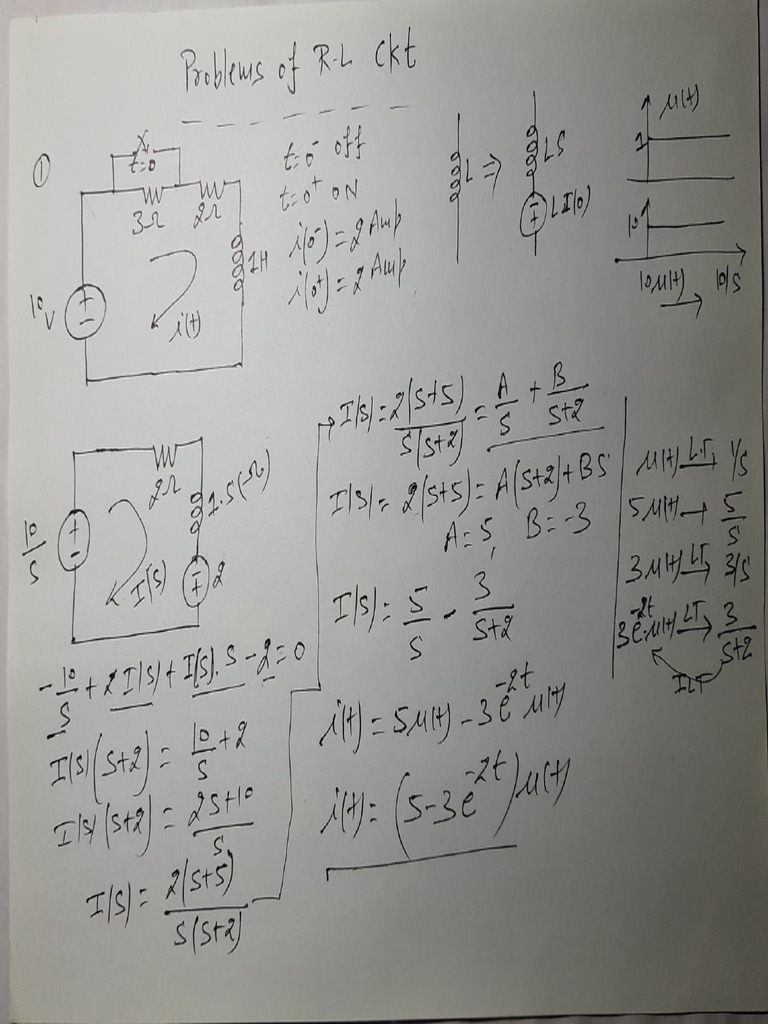 Problems of R-L Ckt
①
t=0
3Ω 2Ω
1H
10 V
i(t)
t=0⁻ off
t=0⁺ ON
i(0⁻) = 2 Amp
i(0⁺) = 2 Amp
L ⇒ LS
LI(0)
μ(t)
1
10
10μ(t) → 10/S
2Ω
1.S(Ω)
10/S
I(S)
2
-10/S + 2I(S) + I(S).S - 2 = 0
I(S)(S+2) = 10/S + 2
I(S)(S+2) = 2S+10/S
I(S) = 2(S+5)/S(S+2)
I(S) = 2(S+5)/S(S+2) = A/S + B/S+2
I(S) = 2(S+5) = A(S+2) + BS
A = 5, B = -3
I(S) = 5/S - 3/S+2
i(t) = 5μ(t) - 3e^-2t μ(t)
i(t) = (5-3e^-2t)μ(t)
μ(t) L.T→ 1/S
5μ(t) → 5/S
3μ(t) LT→ 3/S
3e^-2t.μ(t) LT→ 3/S+2
ILT